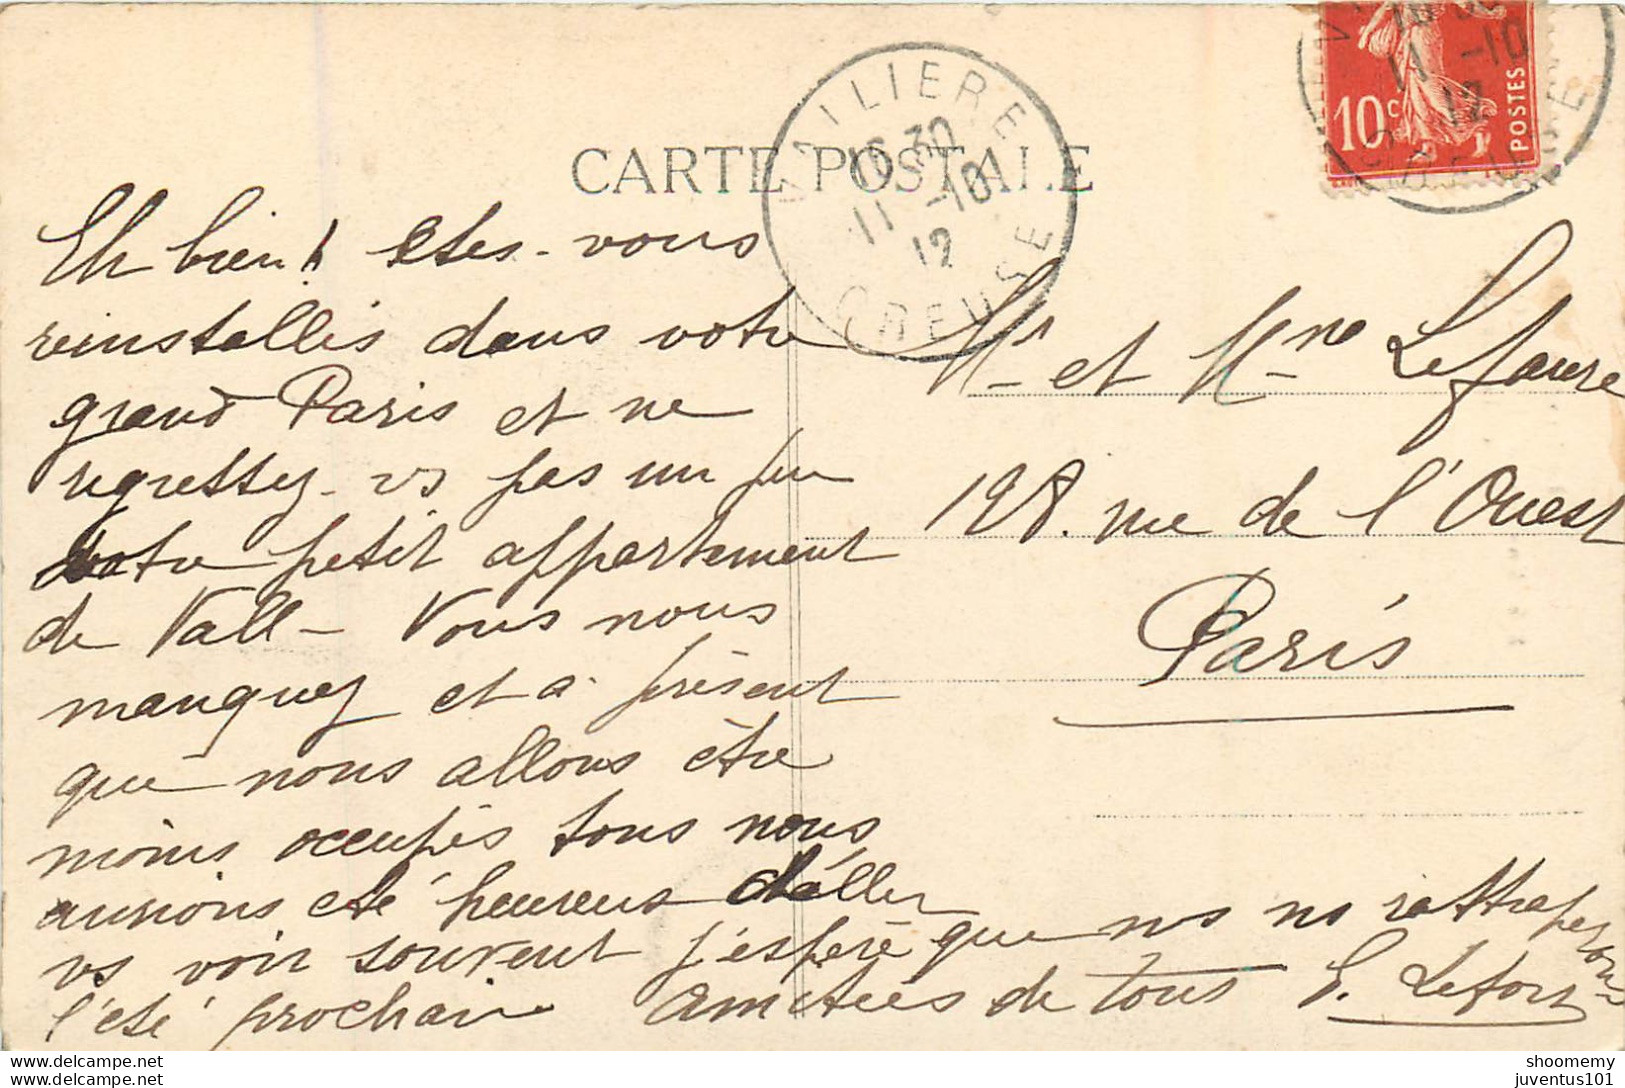 CARTE POSTALE
VALLIERE
16 30
11 -10
12
CREUSE
16 30
11 -10
12
10c
POSTES
Eh bien ! êtes-vous
reinstallés dans votre
grand Paris et ne
regrettez-vs pas un peu
votre petit appartement
de Vall- Vous nous
manquez et à présent
que nous allons être
moins occupés tous nous
aurions été heureux d'aller
vs voir souvent j'espère que ns ns rattraperons
l'été prochain amitiés de tous E. Lefort
Mr et Mme Lefaure
128. rue de l'Ouest
Paris
shoomemy
juventus101